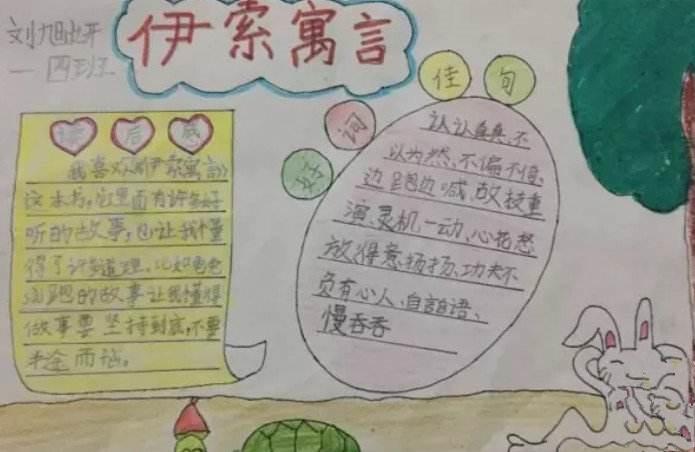 伊索寓言
刘旭
一四班
读后感
我喜欢《伊索寓言》
这本书,它里面有许多好
听的故事,也让我懂
得了许多道理。比如龟兔
赛跑的故事让我懂得
做事要坚持到底,不要
半途而
好词佳句
认认真真、不
以为然、不偏不倚、
边跑边喊、故技重
演、灵机一动、心花怒
放、得意扬扬、功夫不
负有心人、自言语、
慢吞吞